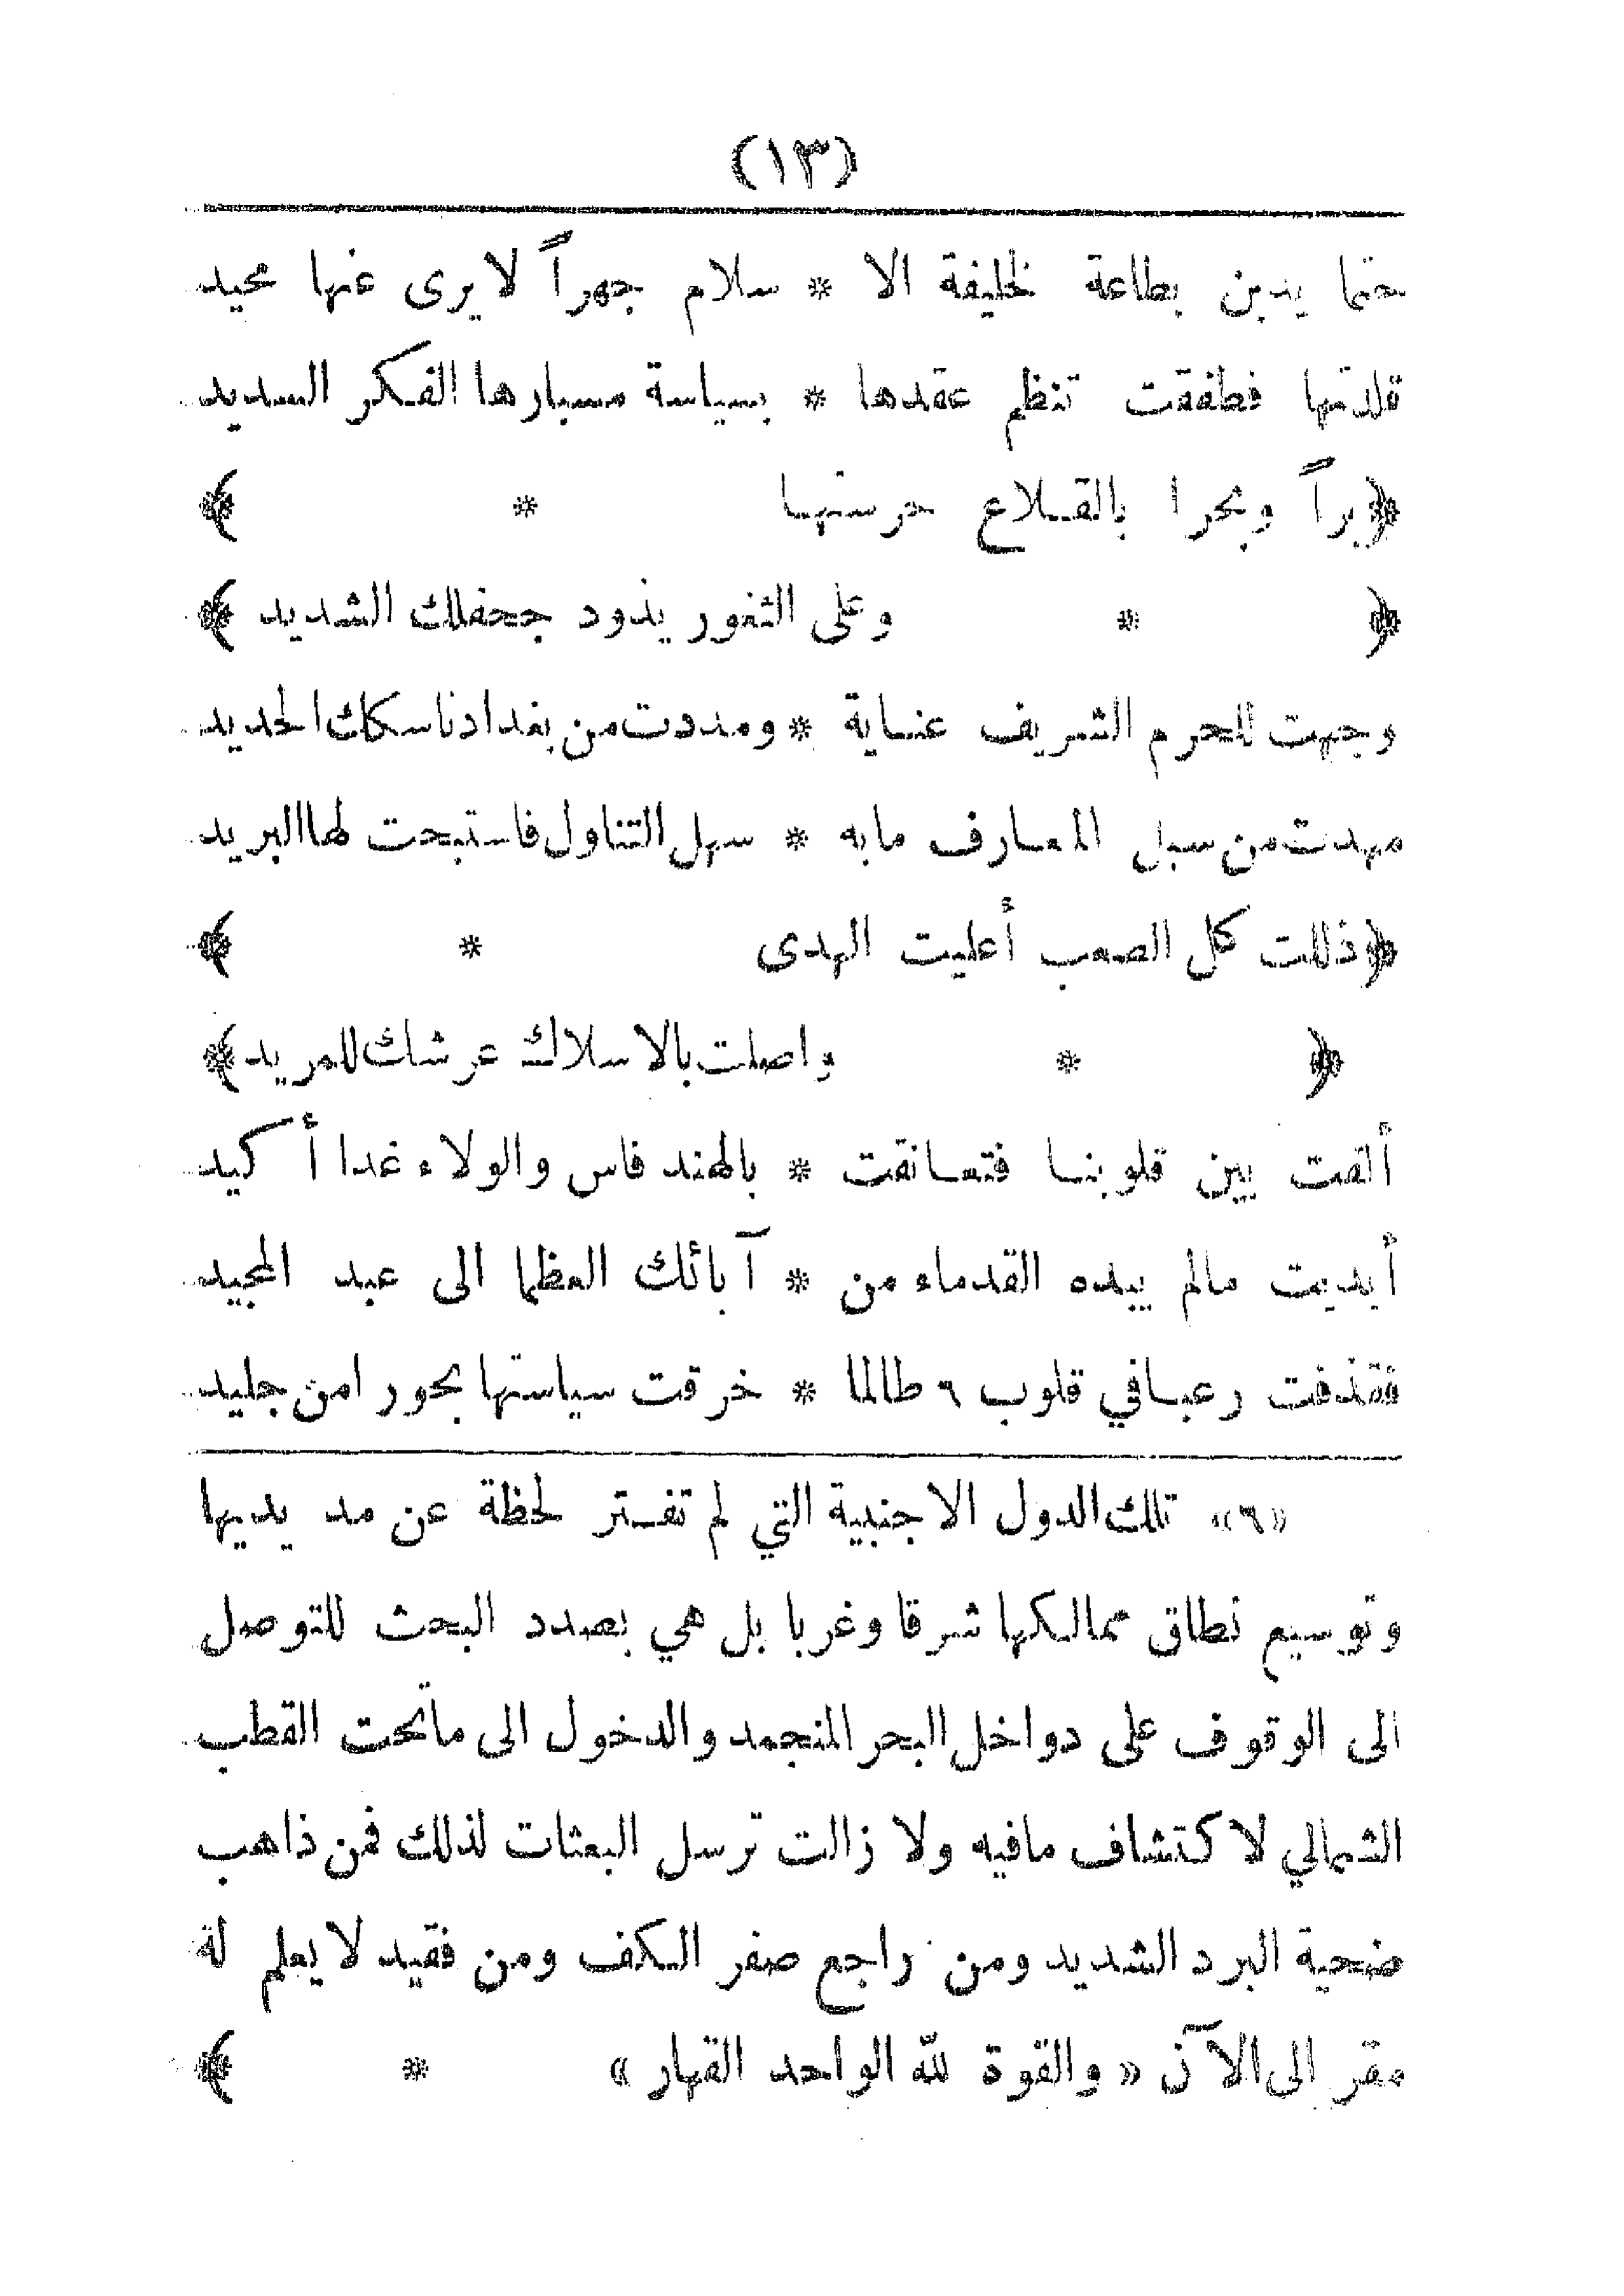 (١٣)
حتما يدين بطاعة لخليفة الا * سلام جهراً لا يرى عنها محيد
قلدتها فطفقت تنظم عقدها * بسياسة مسبارها الفكر السديد
﴿براً وبحرا بالقلاع حرستها * ﴾
﴿ * وعلى الثغور يذود جحفلك الشديد ﴾
وجهت للحرم الشريف عناية * ومددت من بغدادنا سكك الحديد
مهدت من سبل المعارف مابه * سهل التناول فاستبحت لها البريد
﴿ذللت كل الصعب أعليت الهدى * ﴾
﴿ * واصلت بالاسلاك عرشك للمريد ﴾
ألفت بين قلوبنا فتعانقت * بالهند فاس والولاء غدا أكيد
أبديت مالم يبده القدماء من * آبائك العظما الى عبد المجيد
فقذفت رعبا في قلوب ٦ طالما * خرقت سياستها بحورا من جليد
«٦» تلك الدول الاجنبية التي لم تفتر لحظة عن مد يديها
وتوسيع نطاق ممالكها شرقا وغربا بل هي بصدد البحث للتوصل
الى الوقوف على دواخل البحر المنجمد والدخول الى ماتحت القطب
الشمالي لاكتشاف مافيه ولا زالت ترسل البعثات لذلك فمن ذاهب
ضحية البرد الشديد ومن راجع صفر الكف ومن فقيد لا يعلم له
مقر الى الآن «والقوة لله الواحد القهار» * ﴾